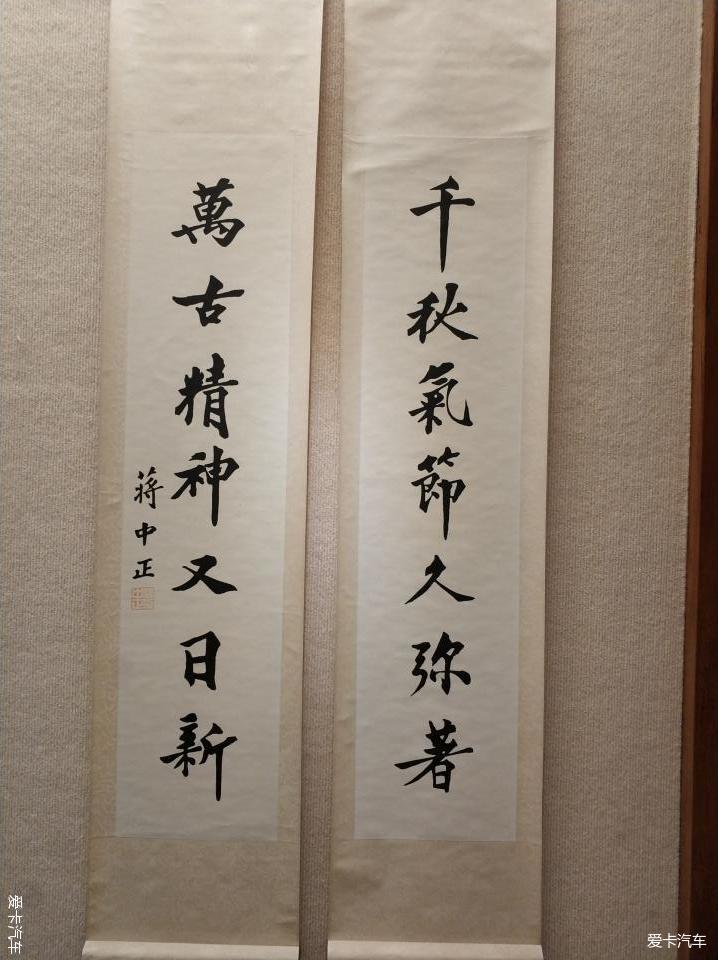 千秋氣節久弥著
萬古精神又日新
蔣中正
爱卡汽车
爱卡汽车